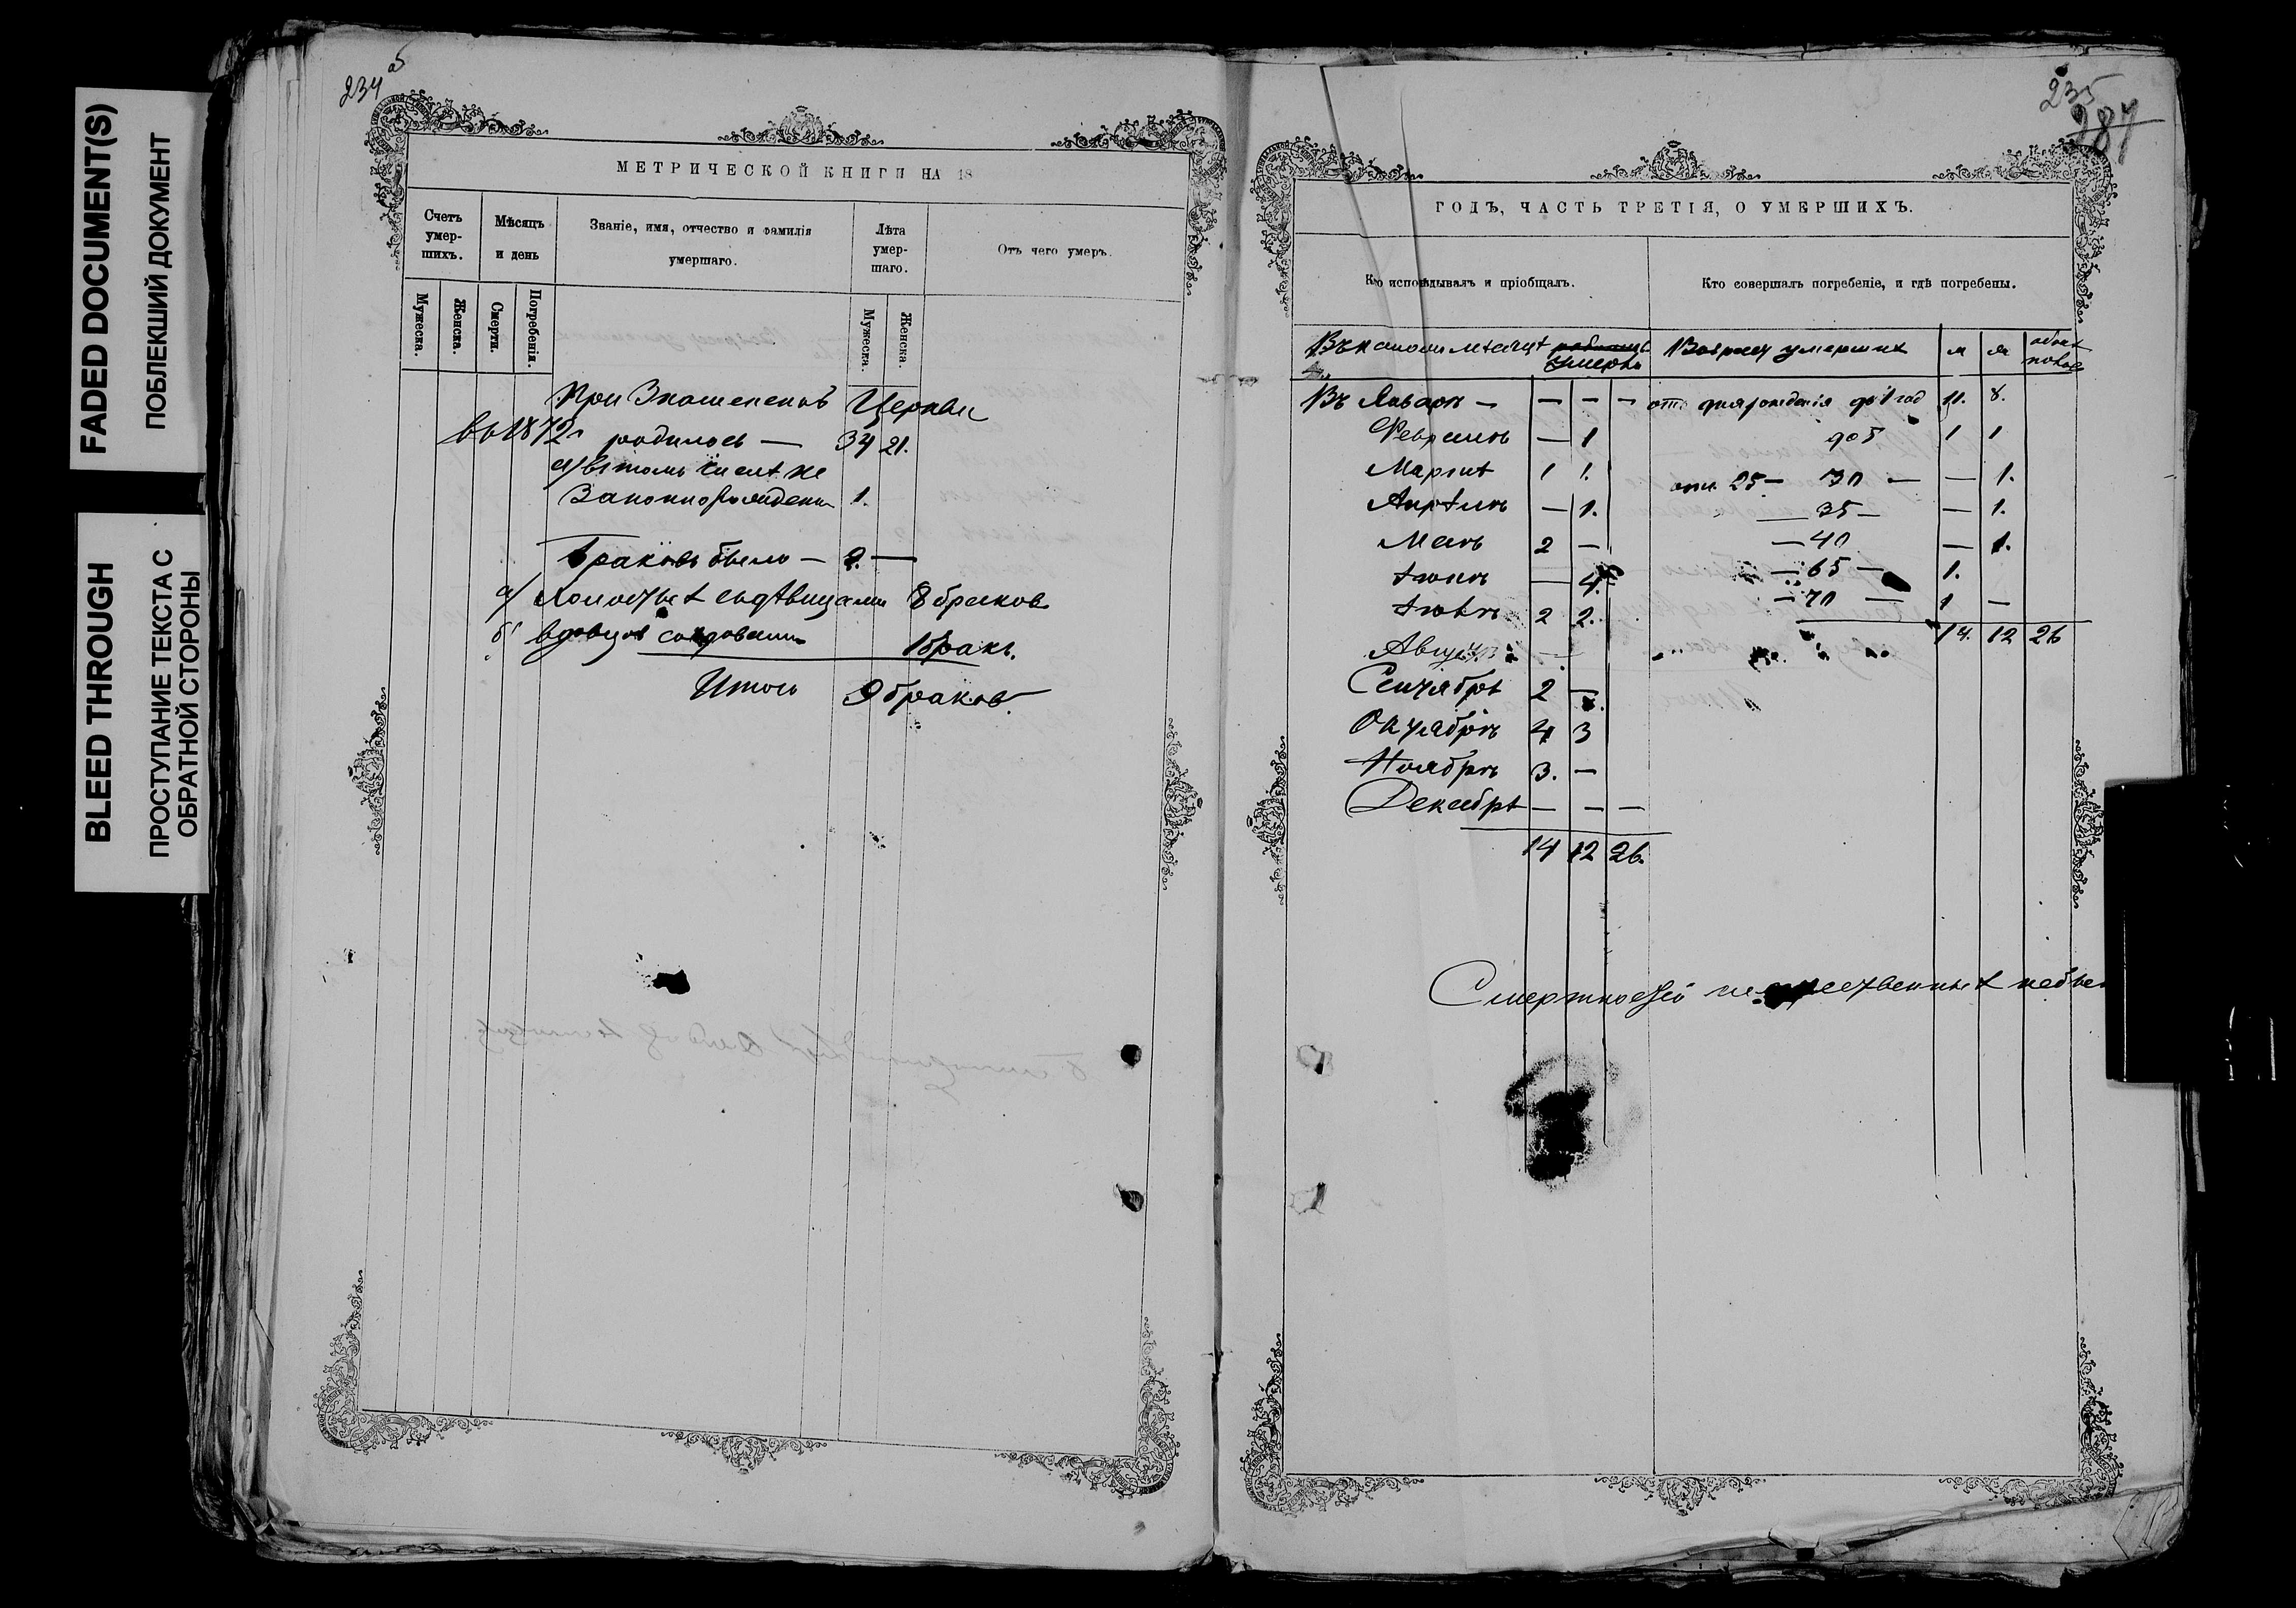 FADED DOCUMENT(S)
ПОБЛЕКШИЙ ДОКУМЕНТ
BLEED THROUGH
ПРОСТУПАНИЕ ТЕКСТА С
ОБРАТНОЙ СТОРОНЫ
234 об
МЕТРИЧЕСКОЙ КНИГИ НА 18
Счетъ умер-шихъ.
Мѣсяцъ и день
Званіе, имя, отчество и фамилія умершаго.
Лѣта умер-шаго.
Отъ чего умеръ.
Мужеска.
Женска.
Смерти.
Погребенія.
Мужеска.
Женска.
При Знаменской Церкви
въ 1872 г родилось — 34 21.
а) въ томъ числѣ не
законнорожден 1.
Браковъ было — 9. —
а) холостых с девицами 8 браков
б) вдовцов со вдовами 1 бракъ.
Итого 9 браков
235
287
ГОДЪ, ЧАСТЬ ТРЕТІЯ, О УМЕРШИХЪ.
Кто исповѣдывалъ и пріобщалъ.
Кто совершалъ погребеніе, и гдѣ погребены.
Въ каком месяце умерло
Возраст умерших м ж обоих полов
Въ Январѣ — — — —
Февралѣ — 1
Мартѣ 1 1.
Апрѣлѣ — 1.
Маѣ 2 —
Іюнѣ — 4.
Іюлѣ 2 2.
Август —
Сентябрѣ 2 —
Октябрѣ 4 3
Ноябрѣ 3. —
Декабрѣ — — —
14 12 26.
от дня рождения до 1 год 11. 8.
до 5 1 1
от 25 — 30 — — 1.
— 35 — — 1.
— 40 — 1.
— 65 — 1.
— 70 — 1 —
14. 12 26
Смертностей